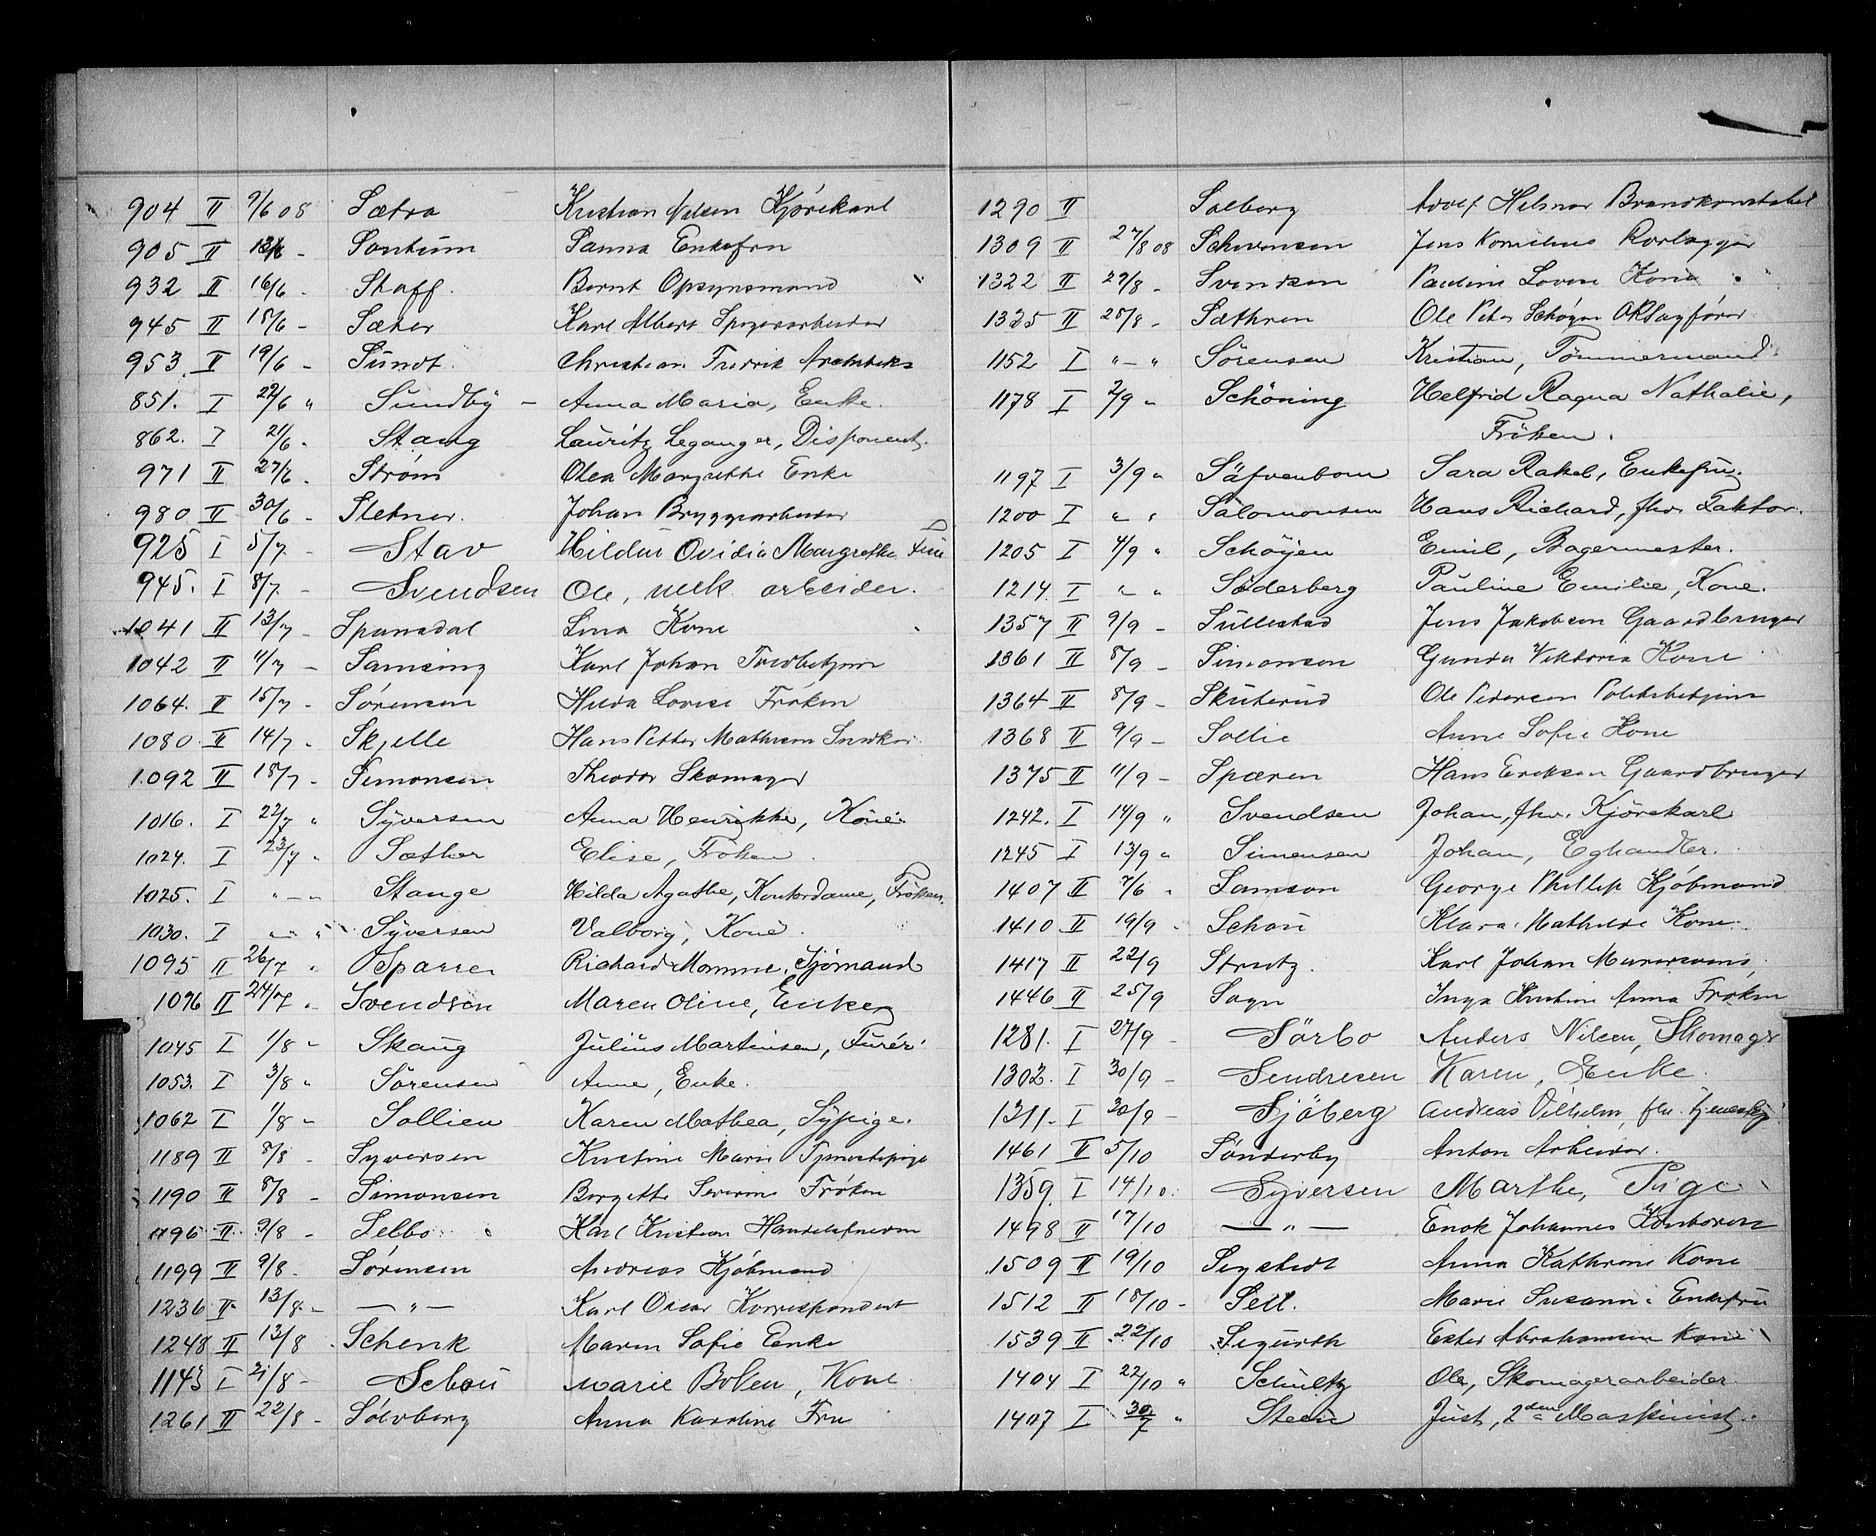 904 II 9/6 08 Sætra Kristian Nelsen Kjørekarl
905 II 13/6 - Sontum Sanna Enkefru
932 II 16/6 - Staff. Bernt Opsynsmand
945 II 18/6 - Sæter Karl Albert
953 II 19/6 - Sundt. Christian Fredrik Arkitekt
851. I 22/6 " Sundby - Anna Maria, Enke.
862. I 21/6 - Stang Lauritz Leganger, Disponent.
971 II 27/6 - Strøm Olea Margrethe Enke
980 II 30/6 - Sletner. Johan Bryggearbeider
925 I 5/7 - Stav Hildur Ovidia Margrethe Frue
945. I 8/7 - Svendsen Ole, mek. arbeider.
1041 II 13/7 - Spansdal Lina Kone
1042 II 11/7 - Samsing Karl Johan
1064. II 15/7 - Sørensen Hilda Lovise Frøken
1080. II 14/7 - Skjelle Hans Petter Mathisen Snedker
1092 II 18/7 - Simonsen Theodor Skomager
1016. I 22/7 " Syversen Anna Henrikke, Kone.
1024. I 23/7 " Sæther Elise, Frøken.
1025. I " - " Stange Hilda Agathe, Kontordame, Frøken.
1030. I " - " Syversen Valborg, Kone.
1095 II 26/7 " Sparre Richard Momme, Sjömand
1096 II 24/7 " Svendsen Maren Oline, Enke
1045 I 1/8 " Skaug Julius Martinsen, Furér.
1053. I 3/8 " Sørensen Anne, Enke.
1062 I 1/8 " Sollien Karen Mathea, Sypige.
1189 II 8/8 - Syversen Kristine Marie Tjenestepige
1190 II 8/8 - Simonsen Borgette Severine Frøken
1196 II 9/8 - Selbo Karl Kristian
1199 II 9/8 - Sørensen Andreas Kjøbmand
1236 II 13/8 - — " — Karl Oscar Korrespondent
1248 II 13/8 Schenk Maren Sofie Enke
1143 I 21/8 - Schou Marie Bolien, Kone
1261 II 22/8 - Sølvberg Anna Karoline Fru
1290 II Solberg Adolf Hilmar Brandkonstabel
1309 II 27/8 08 Schwensen Jens Kornelius Rorlægger
1322 II 29/8 - Svendsen Pauline Lovise Kone
1325 II 28/8 - Sæthren Ole Peter Schøyen
1152 I " - " Sörensen Kristian, Tömmermand.
1178 I 2/9 " Schöning Helfrid Ragna Nathalie,
Fröken.
1197 I 3/9 " Säfvenbom Sara Rakel, Enkefru.
1200 I " " Salomonsen Hans Richard, fhv. Faktor.
1205 I 4/9 " Schöyen Emil, Bagermester.
1214 I " " Söderberg Pauline Emilie, Kone.
1357 II 9/9 - Sullestad Jens Jakobsen Gaardbruger
1361 II 8/9 - Simonsen Gunda Viktoria Kone
1364 II 8/9 - Skuterud Ole Pedersen Politibetjent
1368 II 9/9 - Sollie Anne Sofie Kone
1375 II 11/9 - Spæren Hans Eriksen Gaardbruger
1242. I 14/9 " Svendsen Johan, fhv. Kjörekarl
1245 I 13/9 " Simensen Johan, Eghandler.
1407 II 7/6 " Samson George Phillip Kjøbmand
1410 II 19/9 Schou Klara Mathilde Kone.
1417 II 22/9 Strutz. Karl Johan Murersvend
1446 II 25/9 Sogn Inga Kristine Anna Frøken
1281. I 27/9 - Sörbo Anders Nilsen, Skomager
1302. I 30/9 - Sendresen Karen, Enke.
1311. I 30/9 - Sjöberg Andreas Vilhelm, fhv.
1461 II 5/10 Sönderby Anton Arbeider.
1359. I 14/10. Syversen Marthe, Pige
1498 II 17/10 — " — Enok Johannes
1509 II 19/10 Segstedt Anna Kathrine Kone
1512 II 18/10 - Sell. Marie Susanne Enkefru
1539 II 22/10 Sigurth Ester Abrahamsen Kone
1404 I 22/10 " Schultz Ole, Skomagerarbeider
1407 I 30/7 " Steen Just, 2den Maskinist.